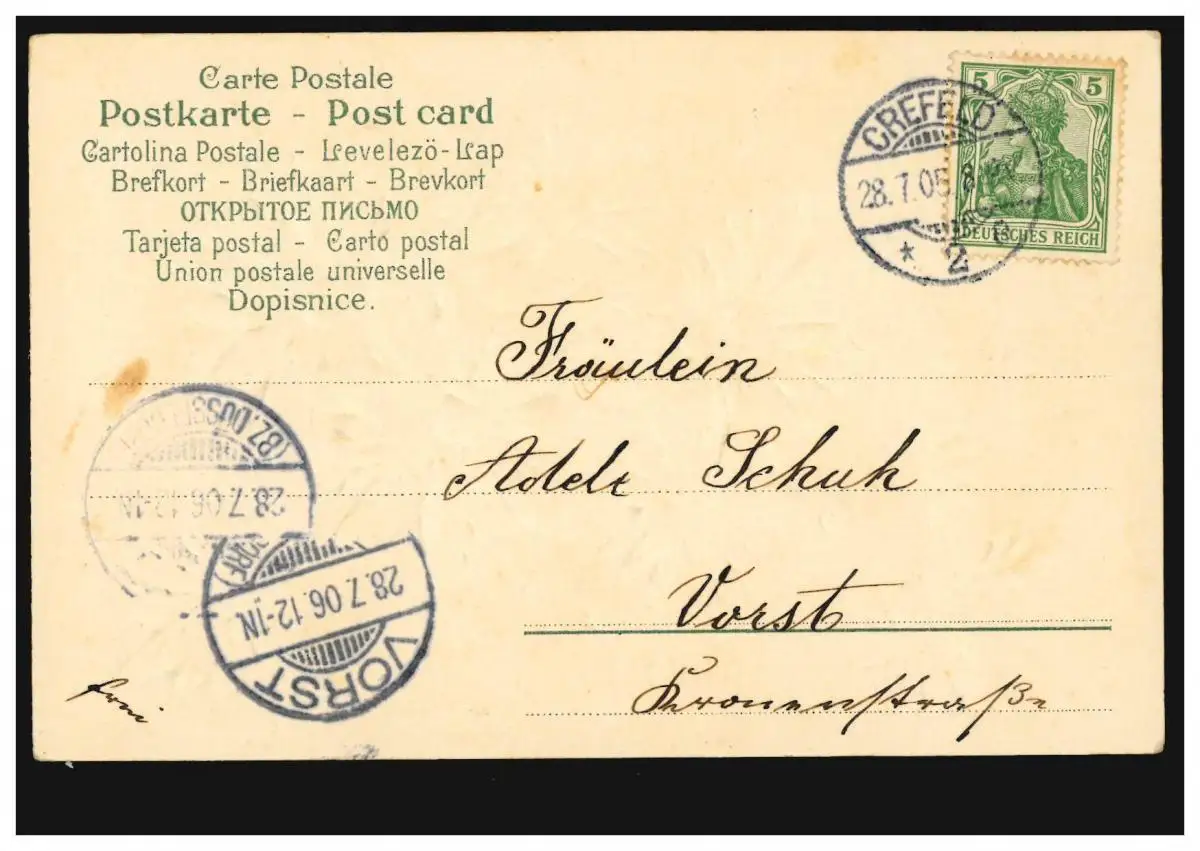 Carte Postale
Postkarte - Post card
Cartolina Postale - Levelezö-Lap
Brefkort - Briefkaart - Brevkort
ОТКРЫТОЕ ПИСЬМО
Tarjeta postal - Carto postal
Union postale universelle
Dopisnice.
5 5
DEUTSCHES REICH
CREFELD
28.7.06
* 2
Fräulein
Adele Schuh
Vorst
Kronenstraße
(BZ. DÜSSELDORF)
28.7.06.12-1N
VORST
28.7.06.12-1N
DORF)